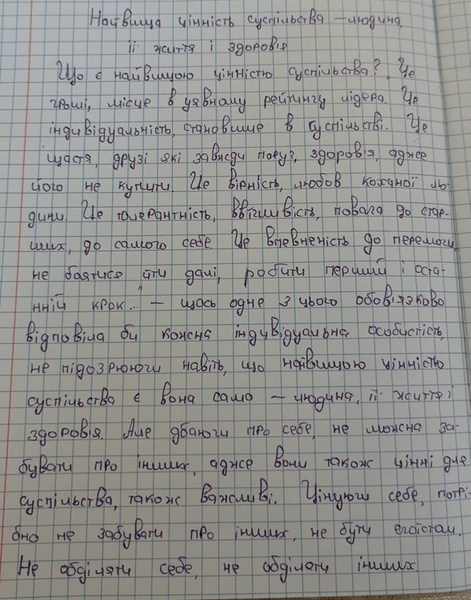 Найвища цінність суспільства – людина,
її життя і здоров'я
Що є найвищою цінністю суспільства? Це
гроші, місце в уявному рейтингу лідера. Це
індивідуальність, становище в суспільстві. Це
щастя, друзі які завжди поруч, здоров'я, адже
його не купити. Це вірність, любов коханої лю-
дини. Це толерантність, ввічливість, повага до стар-
ших, до самого себе Це впевненість до перемоги,
не боятися йти далі, робити перший і оста-
нній крок..." – щось одне з цього обов'язково
відповіла би кожна індивідуальна особистість,
не підозрюючи навіть, що найвищою цінністю
суспільства є вона сама – людина, її життя і
здоров'я. Але дбаючи про себе, не можна за-
бувати про інших, адже вони також цінні для
суспільства, також важливі. Цінуючи себе, потрі-
бно не забувати про інших, не бути егоїстом.
Не обділяти себе, не обділяти інших